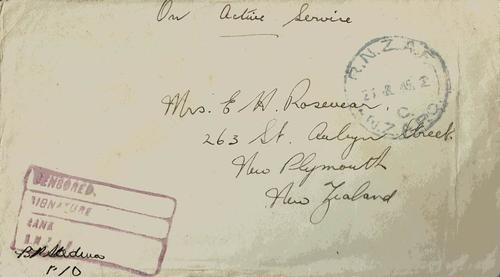 On Active Service
R.N.Z.A.F.
Mrs. E H. Rosevear.
263 St. Aubyn Street
New Plymouth
New Zealand
CENSORED.
SIGNATURE
RANK
P/O